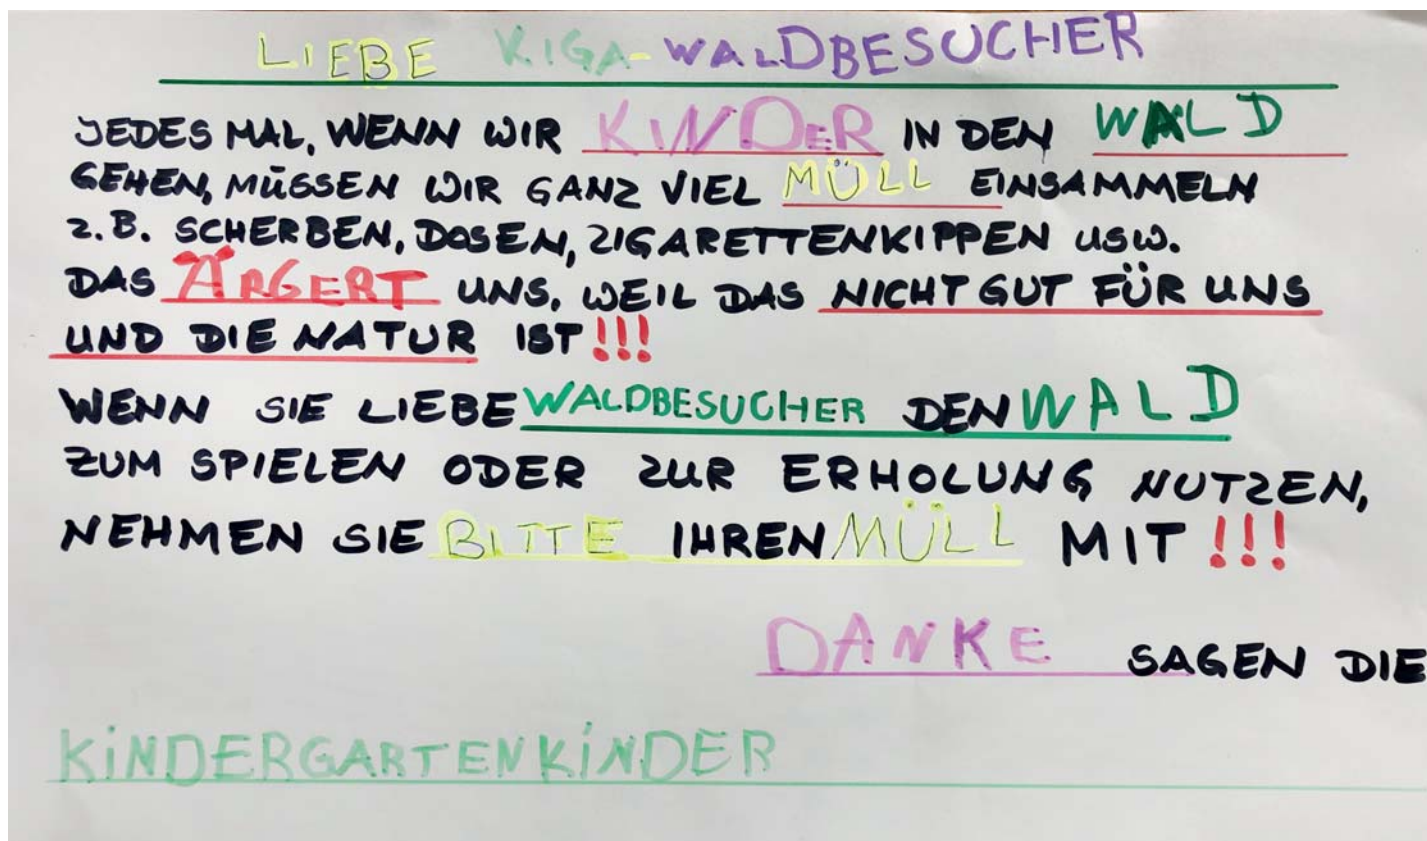 LIEBE KIGA-WALDBESUCHER
JEDES MAL, WENN WIR KINDER IN DEN WALD
GEHEN, MÜSSEN WIR GANZ VIEL MÜLL EINSAMMELN
Z.B. SCHERBEN, DOSEN, ZIGARETTENKIPPEN USW.
DAS ÄRGERT UNS, WEIL DAS NICHT GUT FÜR UNS
UND DIE NATUR IST!!!
WENN SIE LIEBE WALDBESUCHER DEN WALD
ZUM SPIELEN ODER ZUR ERHOLUNG NUTZEN,
NEHMEN SIE BITTE IHREN MÜLL MIT!!!
DANKE SAGEN DIE
KINDERGARTENKINDER